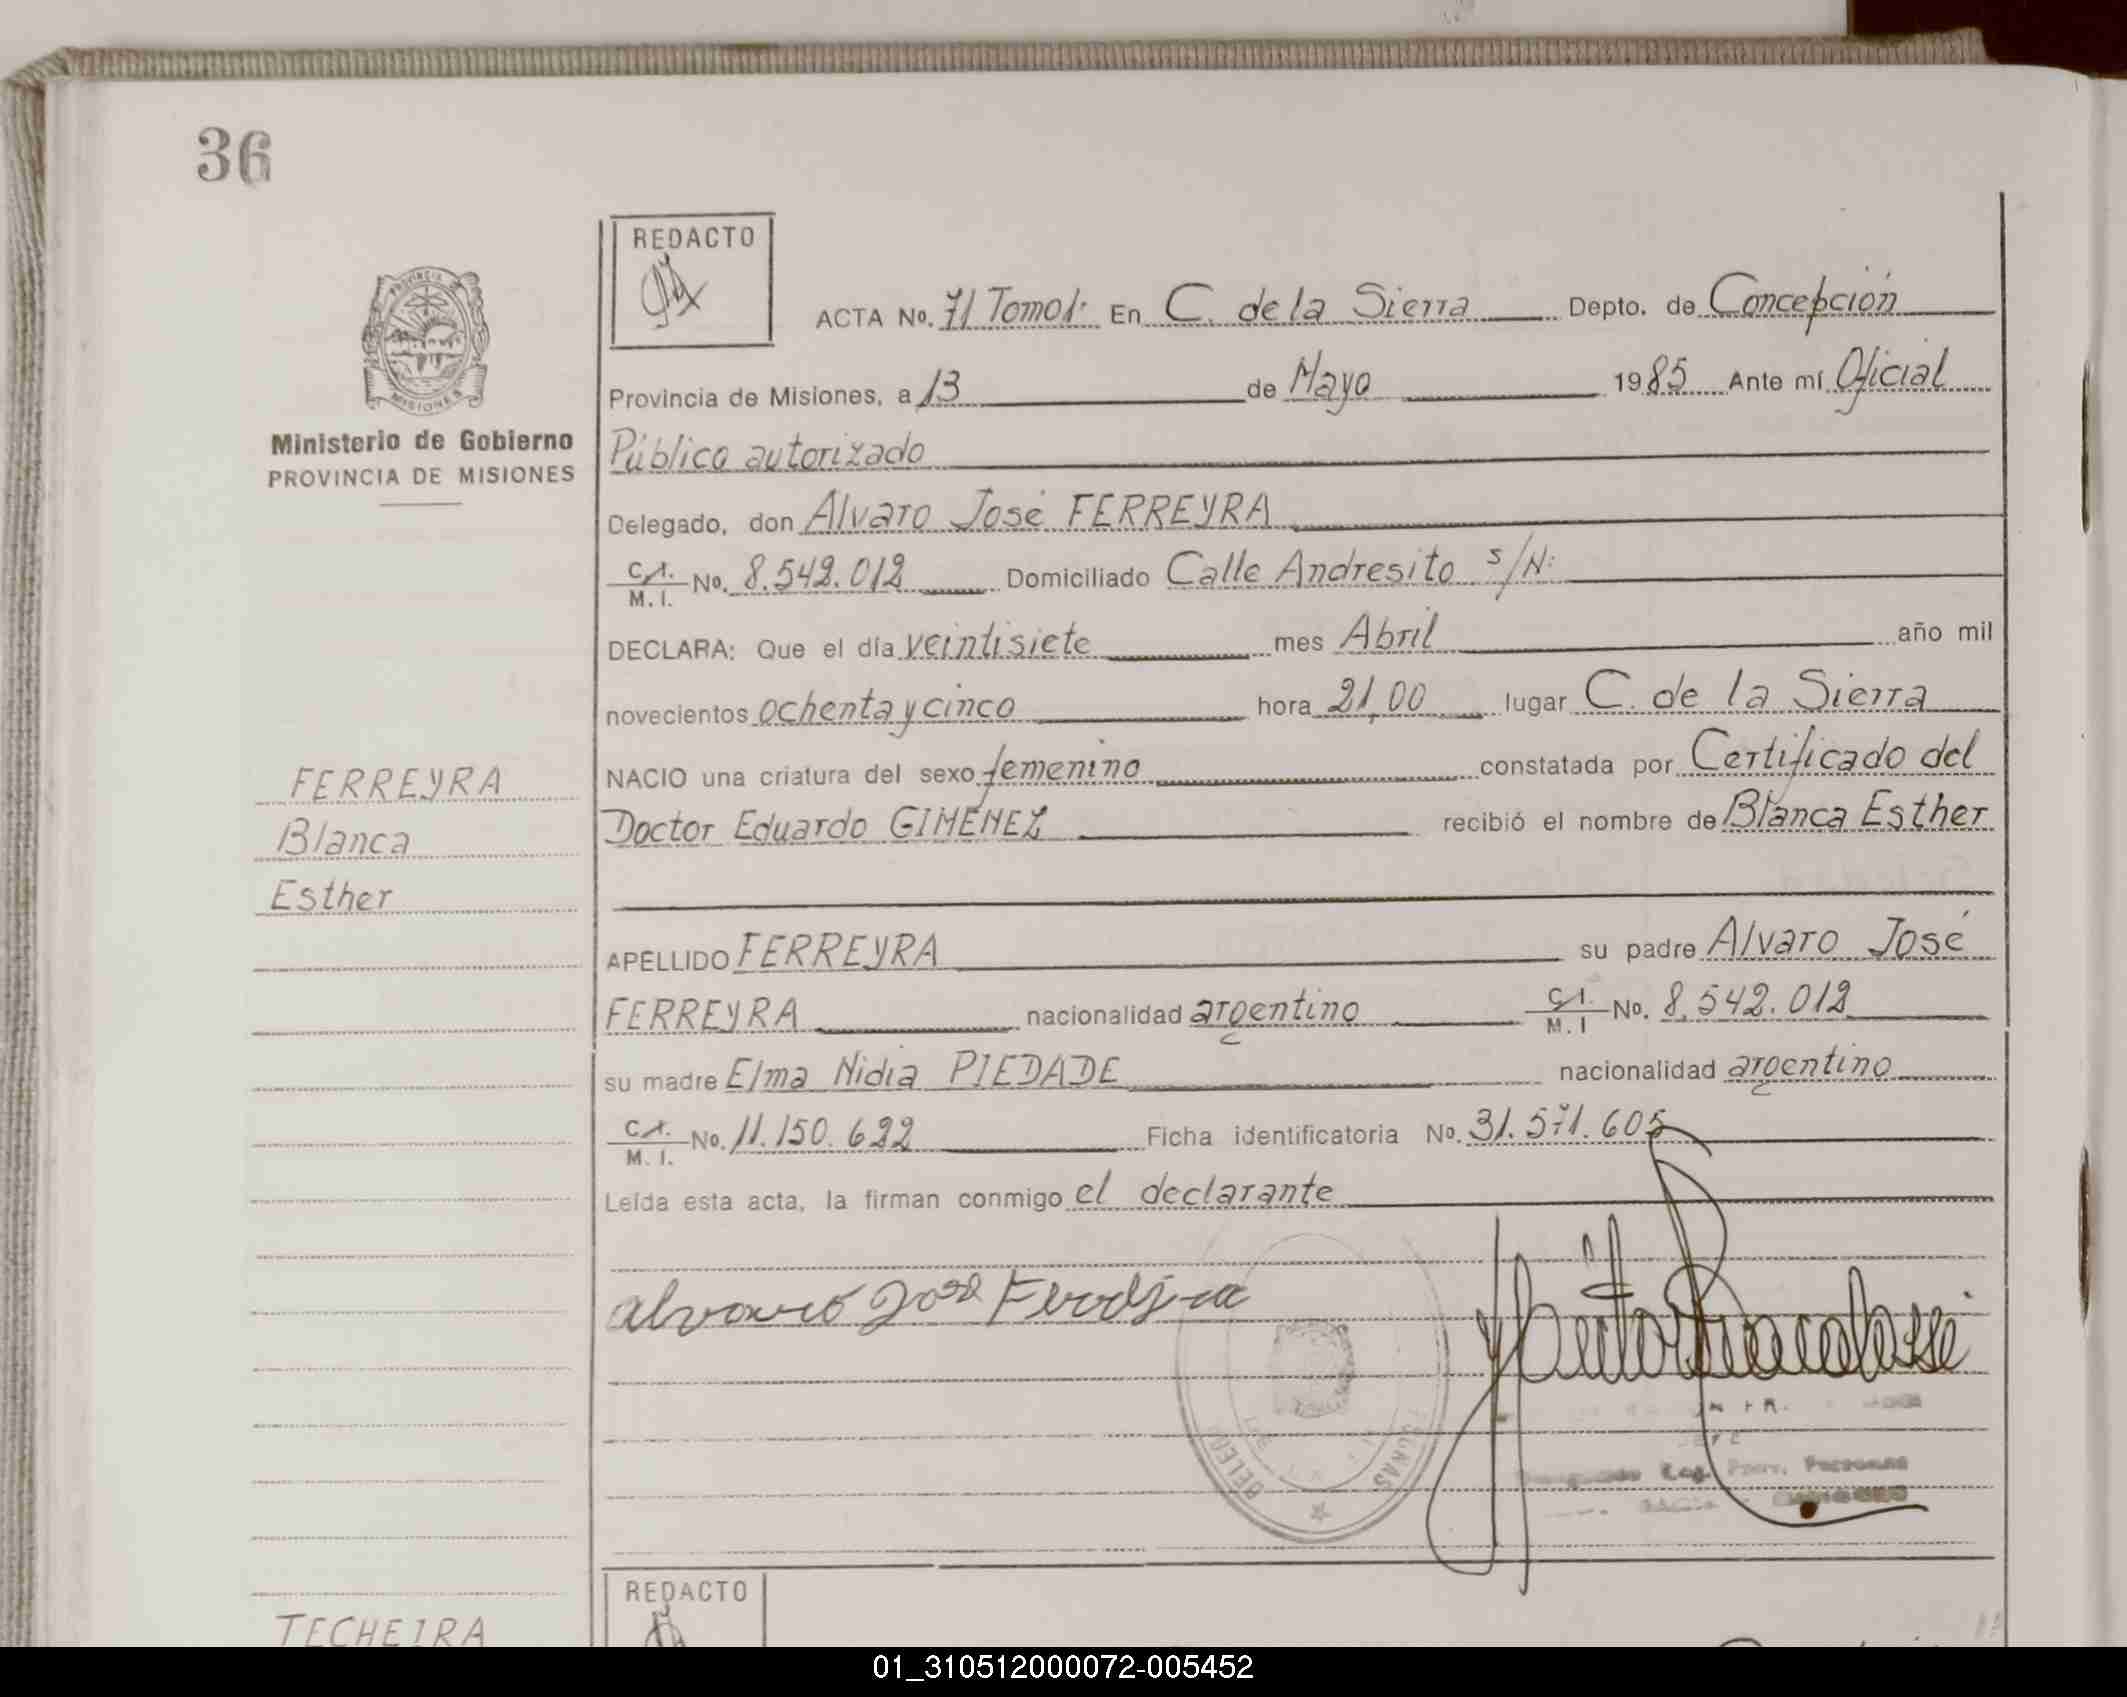 36
REDACTO
PROVINCIA
MISIONES
Ministerio de Gobierno
PROVINCIA DE MISIONES
ACTA No. 71 Tomo I. En C. de la Sierra Depto. de Concepción
Provincia de Misiones, a 13 de Mayo 1985 Ante mí Oficial
Público autorizado
Delegado, don Alvaro José FERREYRA
C.I. M. I. No. 8.542.012 Domiciliado Calle Andresito S/N:
DECLARA: Que el día veintisiete mes Abril año mil
novecientos ochenta y cinco hora 21,00 lugar C. de la Sierra
NACIO una criatura del sexo femenino constatada por Certificado del
Doctor Eduardo GIMENEZ recibió el nombre de Blanca Esther
FERREYRA
Blanca
Esther
APELLIDO FERREYRA su padre Alvaro José
FERREYRA nacionalidad argentino C.I. M. I No. 8.542.012
su madre Elma Nidia PIEDADE nacionalidad argentino
C.I. M. I. No. 11.150.622 Ficha identificatoria No. 31.571.605
Leída esta acta, la firman conmigo el declarante
Alvaro José Ferreyra
REDACTO
TECHEIRA
01_310512000072-005452